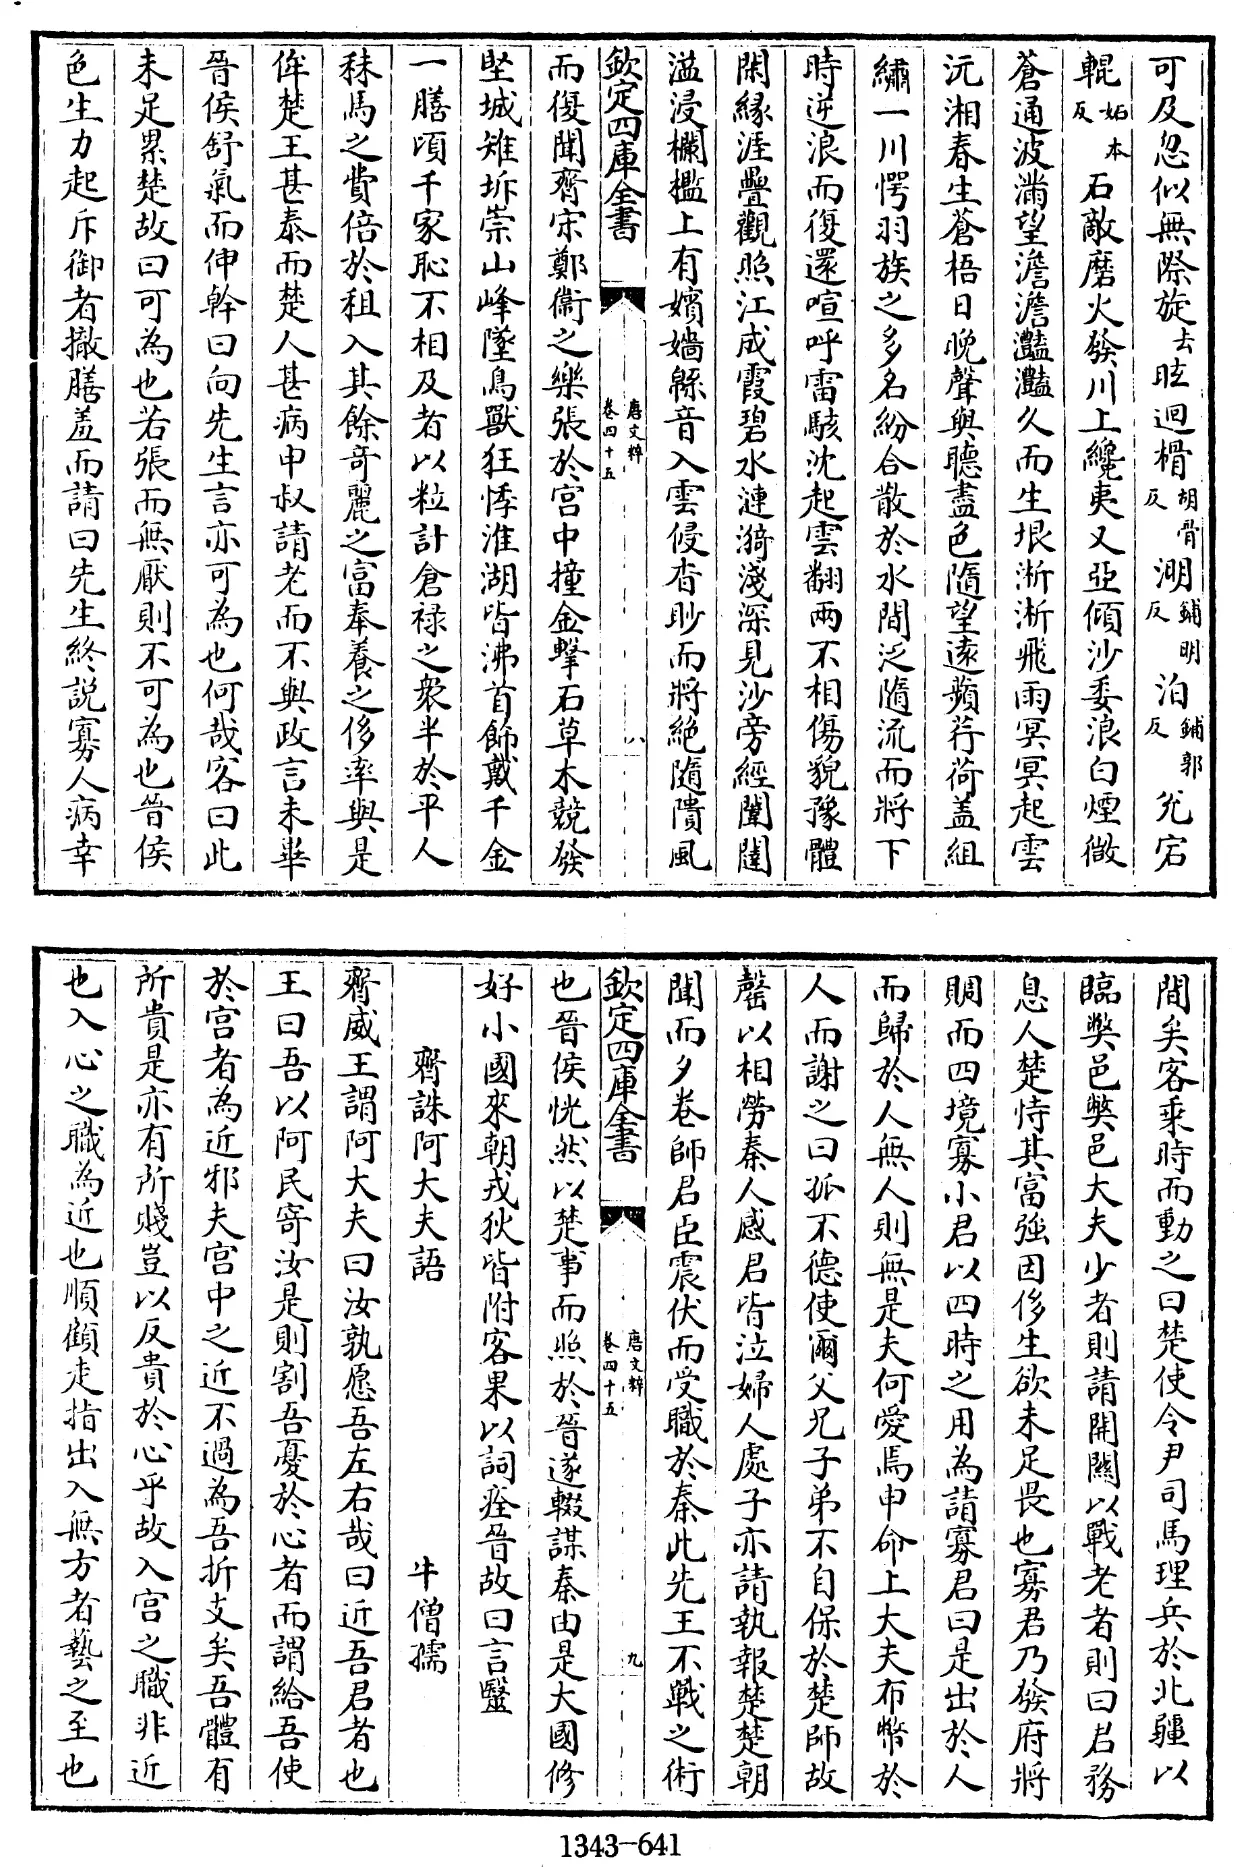 可及忽似無際旋去眩迴榾胡骨反淜鋪明反泊鋪郭反兊宕
輥姑本反石敵磨火發川上纔夷又亞傾沙委浪白煙微
蒼通波滿望澹澹灩灩久而生垠淅淅飛雨冥冥起雲
沅湘春生蒼梧日晚聲與聽盡色隨望遠蘋荇荷盖組
繡一川愕羽族之多名紛合散於水間泛隨流而將下
時逆浪而復還喧呼雷駭沈起雲翻兩不相傷貌豫體
閑緣涯疊觀照江成霞碧水漣漪淺深見沙旁經闉闍
溢浸欄檻上有嬪嬙緜音入雲侵杳眇而將絶隨隤風
欽定四庫全書 唐文粹 卷四十五 八
而復聞齊宋鄭衞之樂張於宫中撞金擊石草木競發
堅城雉坼崇山峰墜鳥獸狂悸淮湖皆沸首飾戴千金
一膳頃千家恥不相及者以粒計倉禄之衆半於平人
秣馬之費倍於租入其餘奇麗之富奉養之侈率與是
侔楚王甚泰而楚人甚病申叔請老而不與政言未畢
晉侯舒氣而伸幹曰向先生言亦可為也何哉客曰此
未足累楚故曰可為也若張而無厭則不可為也晉侯
色生力起斥御者撤膳羞而請曰先生終説寡人病幸
間矣客乘時而動之曰楚使令尹司馬理兵於北疆以
臨弊邑弊邑大夫少者則請開關以戰老者則曰君務
息人楚恃其富強因侈生欲未足畏也寡君乃發府將
賙而四境寡小君以四時之用為請寡君曰是出於人
而歸於人無人則無是夫何愛焉申命上大夫布幣於
人而謝之曰孤不德使爾父兄子弟不自保於楚師故
罄以相勞秦人感君皆泣婦人處子亦請執報楚楚朝
聞而夕卷師君臣震伏而受職於秦此先王不戰之術
欽定四庫全書 唐文粹 卷四十五 九
也晉侯恍然以楚事而照於晉遂輟謀秦由是大國修
好小國來朝戎狄皆附客果以詞痊晉故曰言毉
齊誅阿大夫語 牛僧孺
齊威王謂阿大夫曰汝孰愿吾左右哉曰近吾君者也
王曰吾以阿民寄汝是則割吾憂於心者而謂給吾使
於宫者為近邪夫宫中之近不過為吾折支矣吾體有
所貴是亦有所賤豈以反貴於心乎故入宫之職非近
也入心之職為近也順顧走指出入無方者藝之至也
1343-641